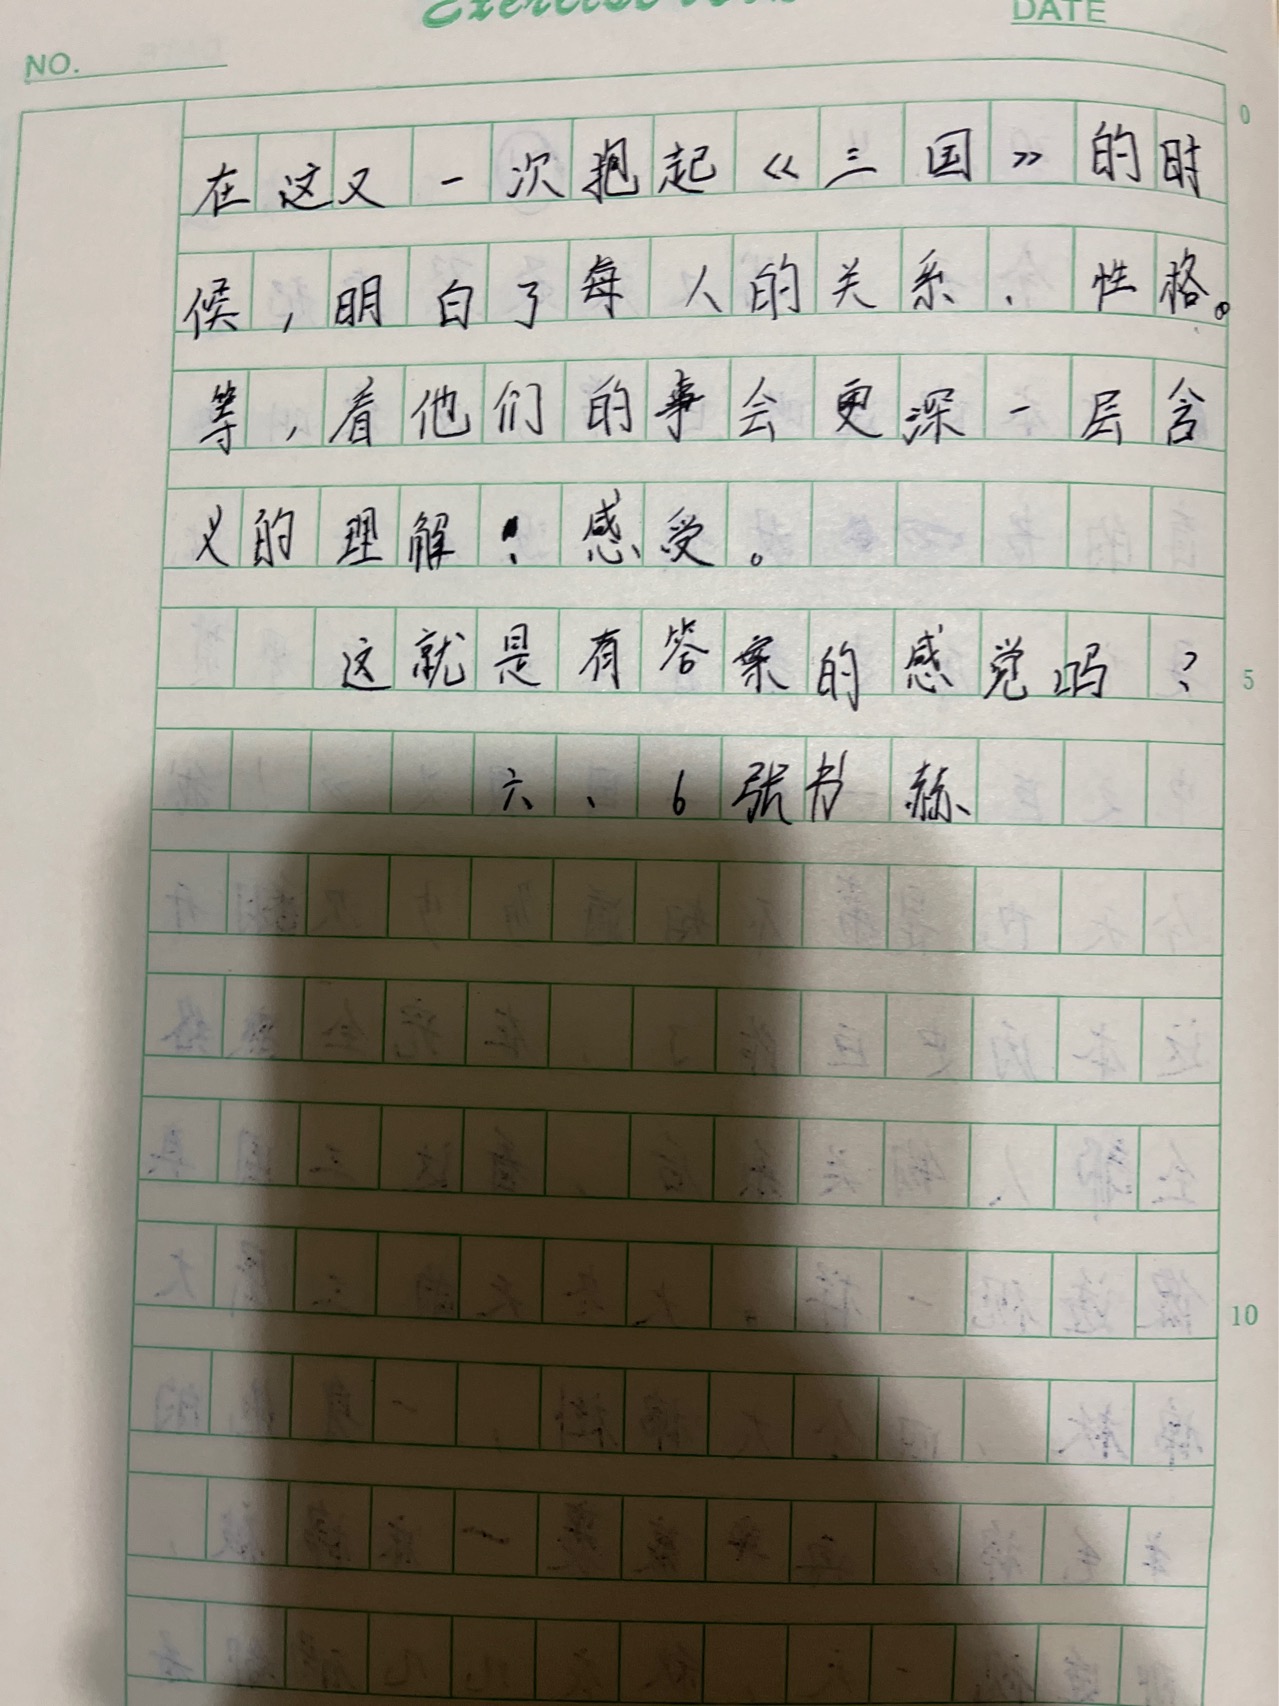 Exercise book
DATE
NO.
0
在这又一次抱起《三国》的时
候，明白了每人的关系、性格。
等，看他们的事会更深一层含
义的理解、感受。
这就是有答案的感觉吗？
5
六、6张书赫
10